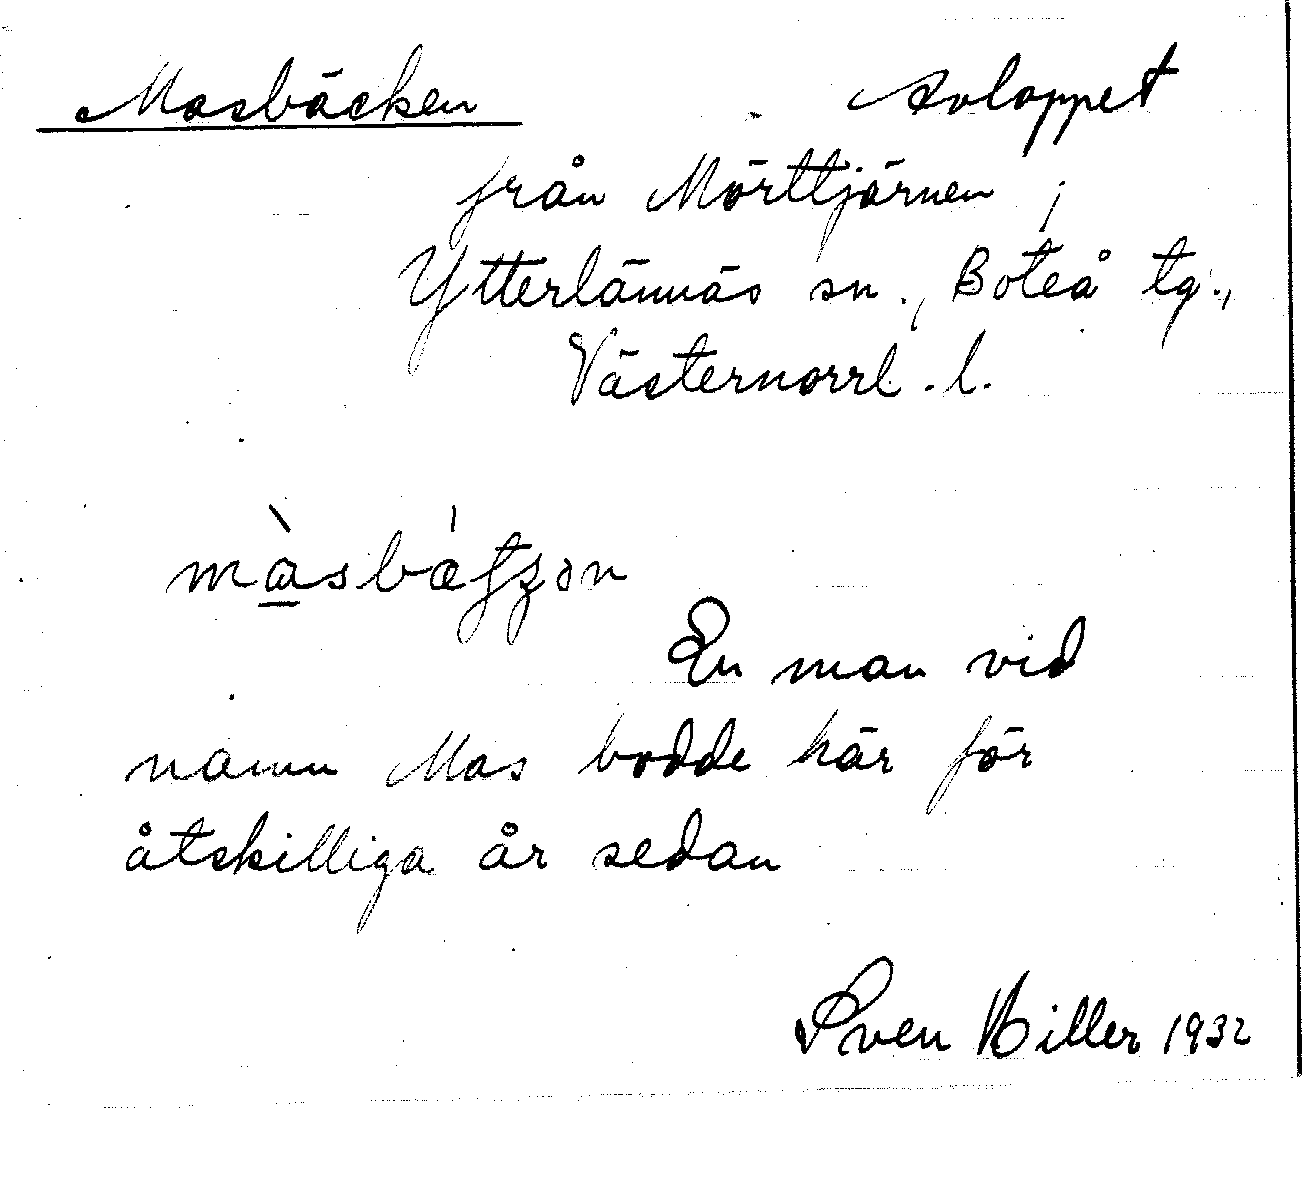 Masbäcken avloppet
från Mörttjärnen,
Ytterlännäs sn., Boteå tg.,
Västernorrl. l.
En man vid
namn Mas bodde här för
åtskilliga år sedan
Sven Hiller 1932